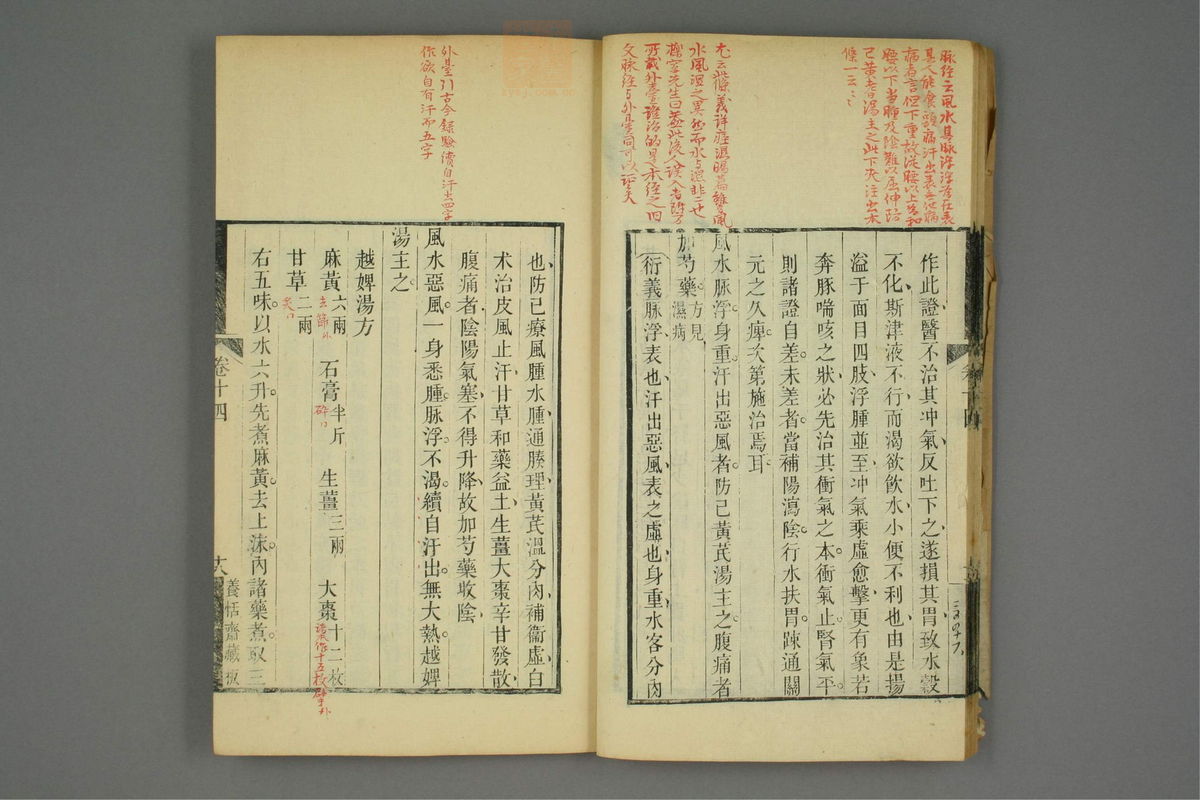 脉經云風水其脉浮浮爲在表
其人能食頭痛汗出表無他病
病者言但下重故從腰以上爲和
腰以下當腫及陰難以屈伸防
己黃耆湯主之此下夾注出本
條一云
作此證醫不治其冲氣反吐下之遂損其胃致水穀
不化斯津液不行而渴欲飲水小便不利也由是揚
溢于面目四肢浮腫並至冲氣乘虛愈擊更有象若
奔豚喘咳之狀必先治其衝氣之本衝氣止腎氣平
則諸證自差未差者當補陽瀉陰行水扶胃踈通關
元之久痺次第施治焉耳
風水脉浮身重汗出惡風者防己黃芪湯主之腹痛者
加芍藥方見濕病
衍義脉浮表也汗出惡風表之虛也身重水客分肉
尤云此條義詳痙濕暍篇雖風
水風濕之異然而水与濕非二也
櫟窓先生曰蓋此後人誤入者附方
所載外臺證治的是本經之旧
文脉經与外臺同可以證矣
也防己療風腫水腫通腠理黃芪溫分肉補衞虛白
术治皮風止汗甘草和藥益土生薑大棗辛甘發散
腹痛者陰陽氣塞不得升降故加芍藥收陰
風水惡風一身悉腫脉浮不渴續自汗出無大熱越婢
湯主之
外臺引古今錄驗續自汗出四字
作欲自有汗而五字
越婢湯方
麻黃六兩去節 石膏半斤碎 生薑三兩 大棗十二枚
甘草二兩炙
右五味以水六升先煮麻黃去上沫內諸藥煮取三
卷十四
養恬齋藏板